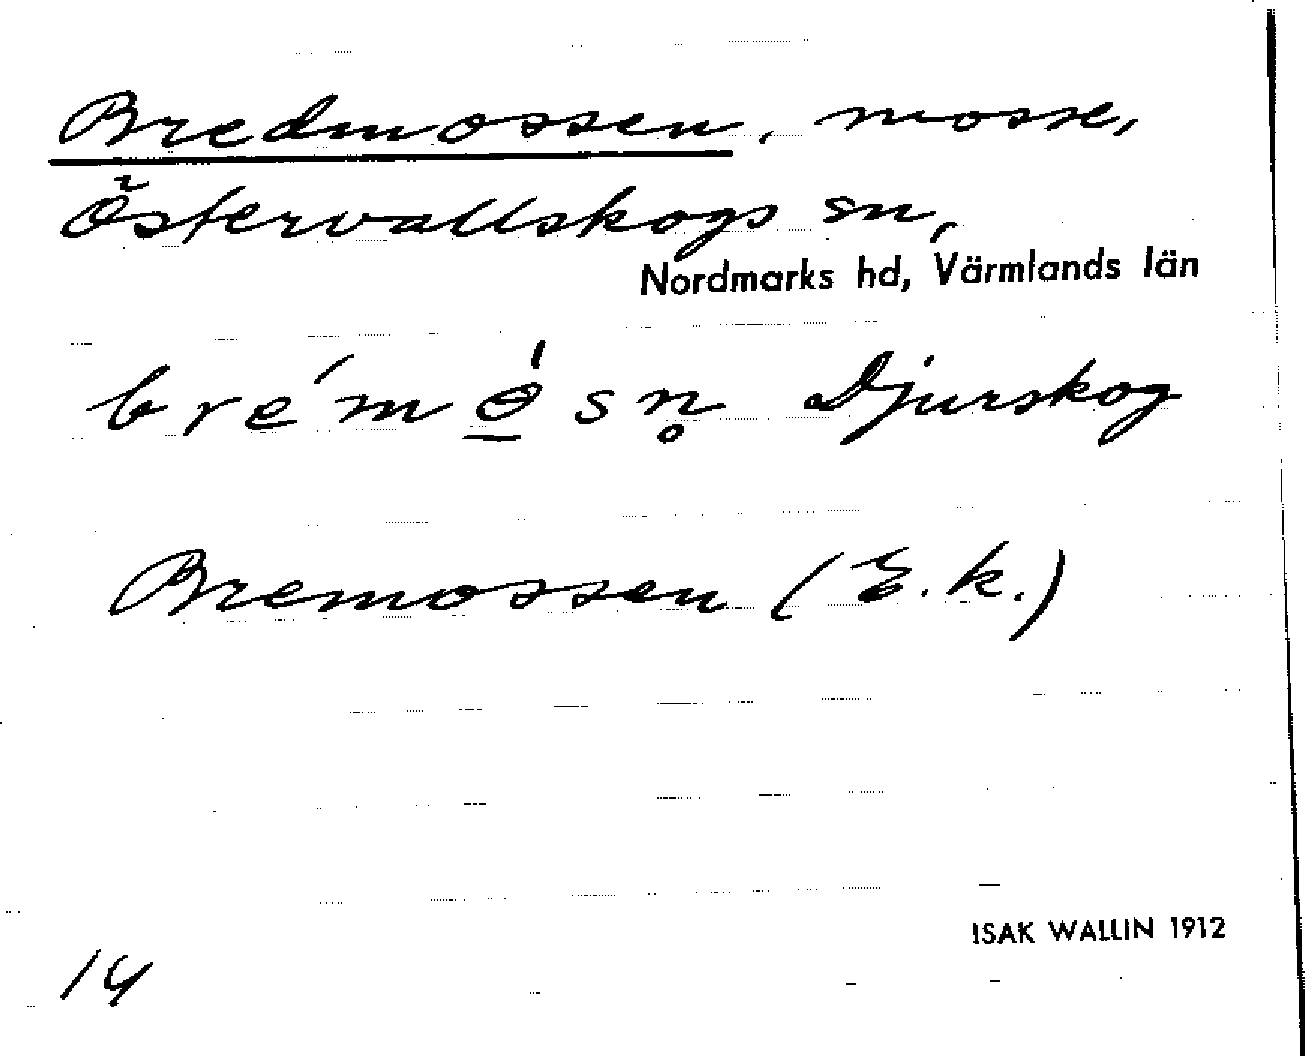 Bredmossen, mosse,
Östervallskogs sn,
Nordmarks hd, Värmlands län
bre´mɵ̠´sn̥ Djurskog
Bremossen (E.k.)
ISAK WALLIN 1912
14